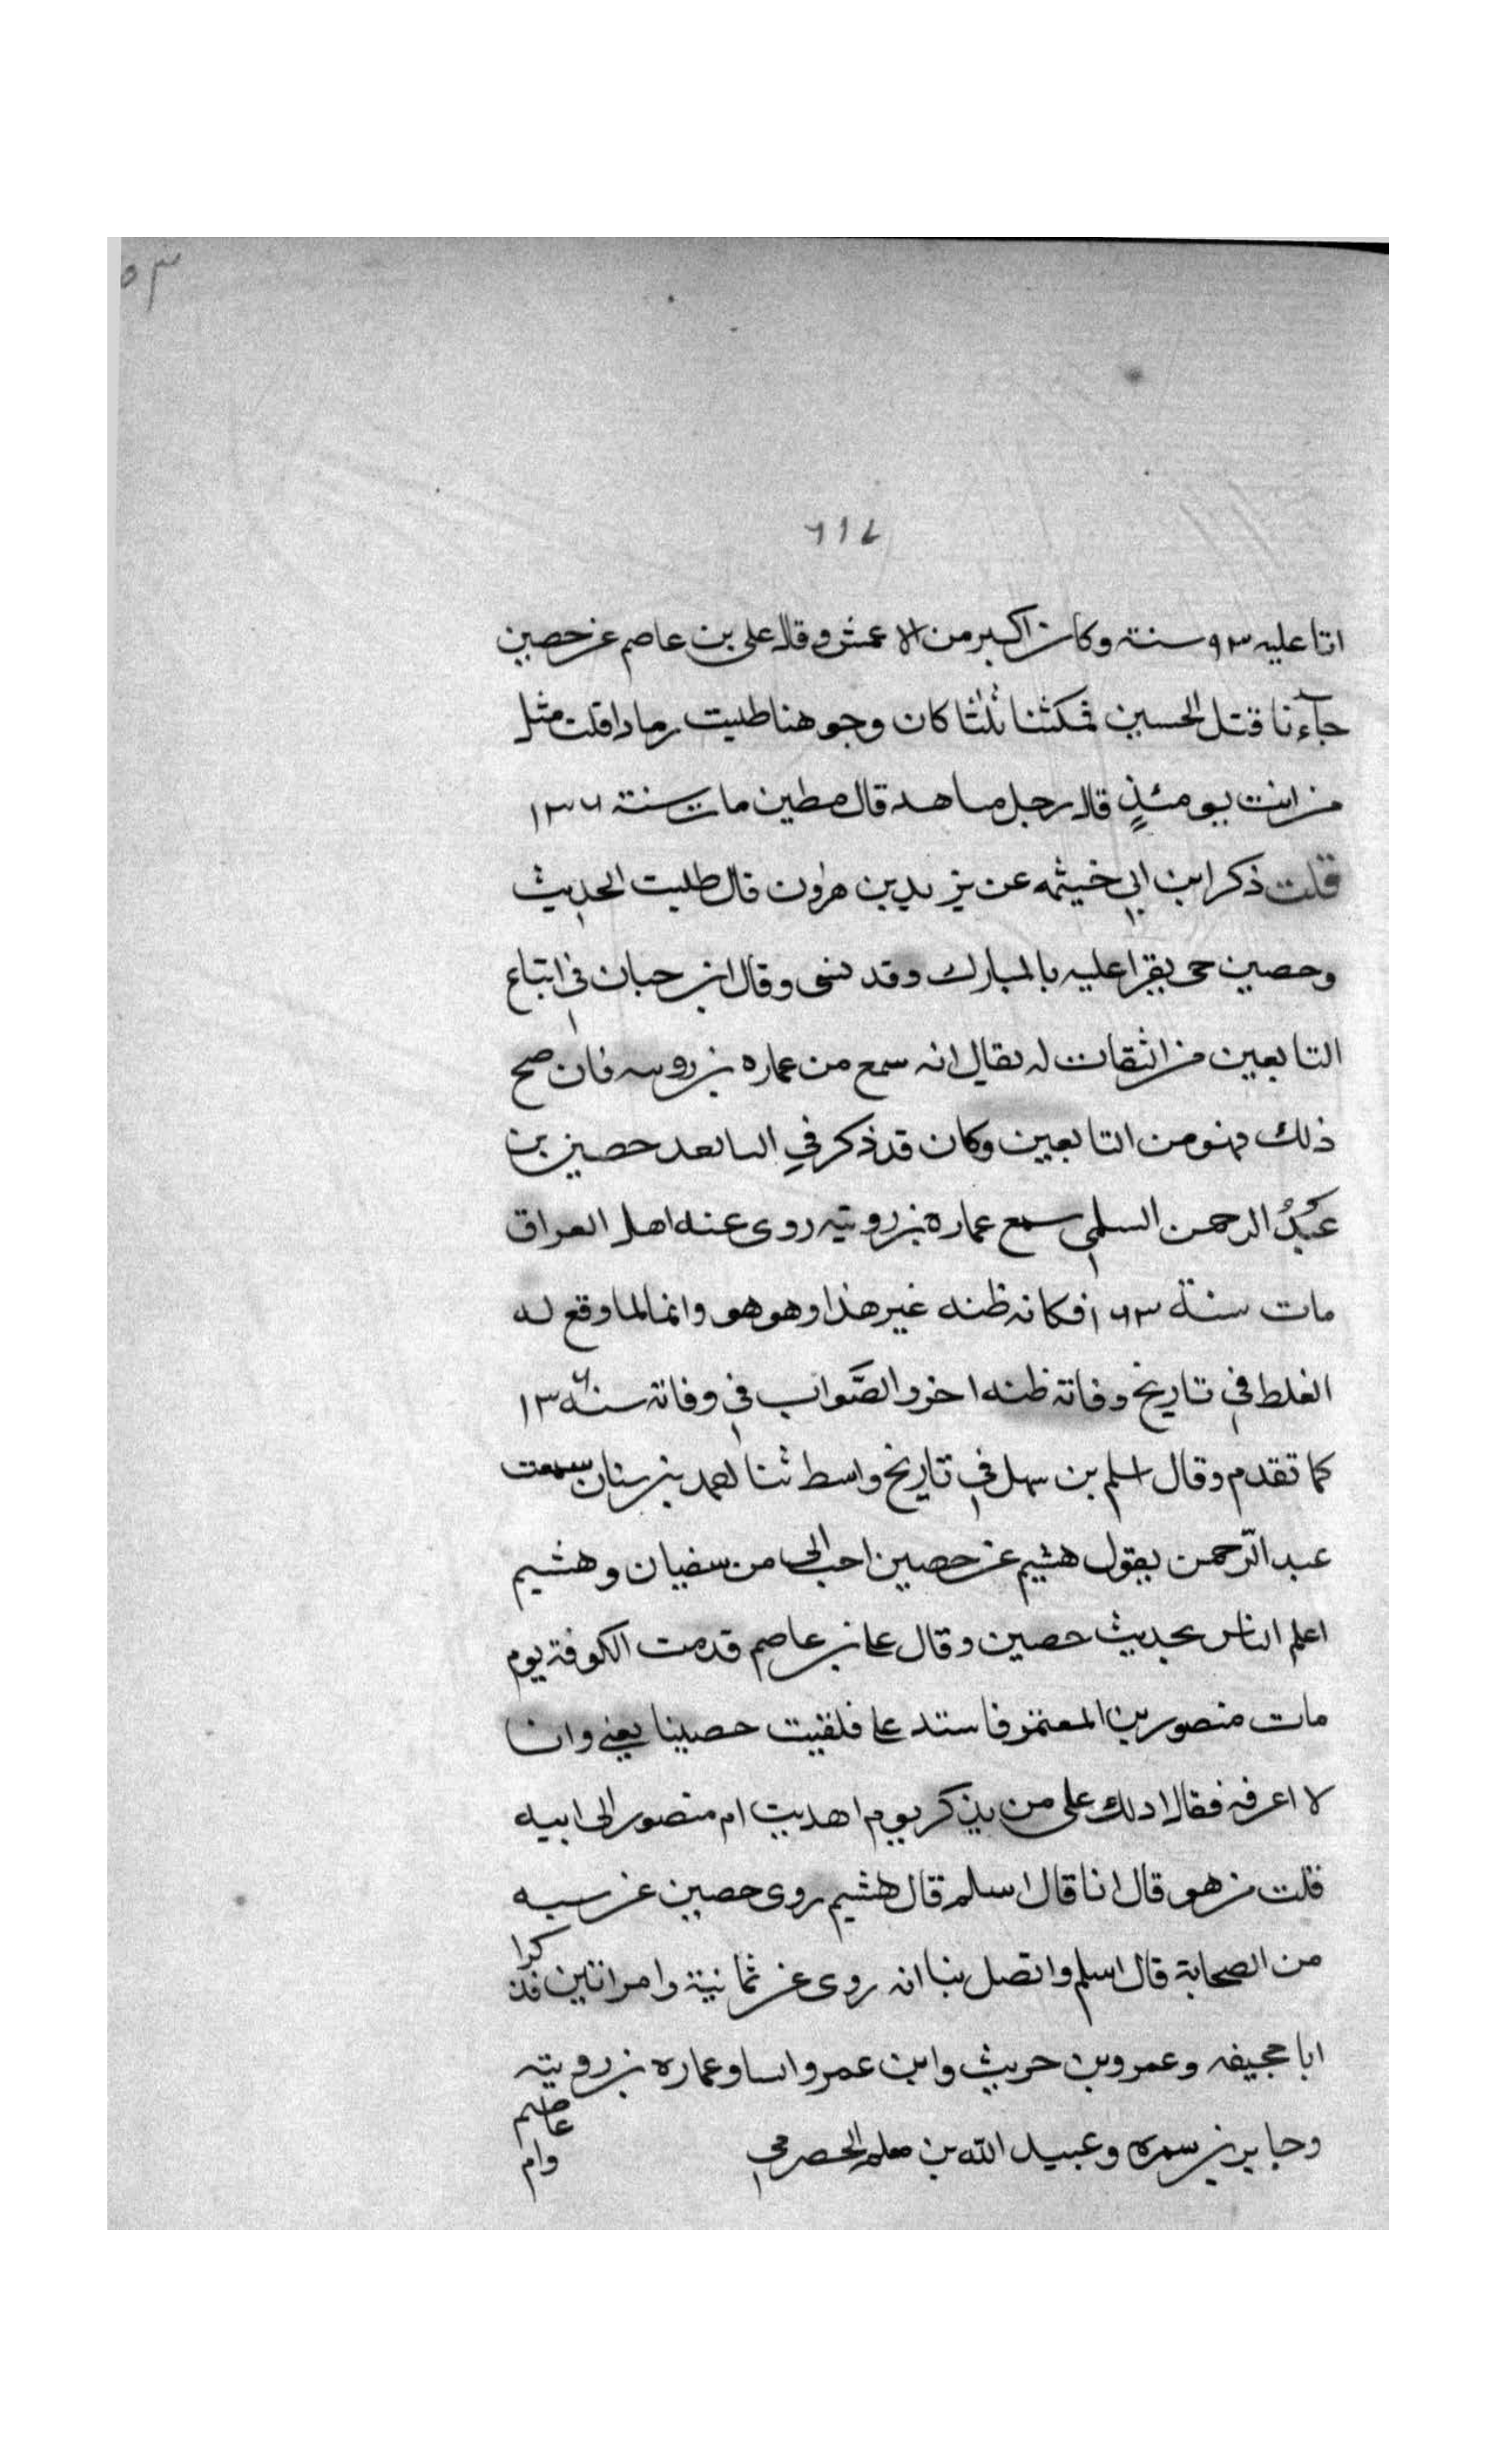 ٥٣
٦١٤
اتا عليه ٩٣ سنة وكان اكبر من الاعمش وقال على بن عاصم عن حصين
جآءنا قتل الحسين فمكثنا ثلثا كان وجوهنا طليت رمادا قلت مثل
من انت يومئذٍ قال رجل مساهد قال مطين مات سنة ١٣٦
قلت ذكر ابن ابي خيثمه عن يزيد بن هرون قال طلبت الحديث
وحصين حى يقرا عليه بالمبارك وقد نسى وقال ابن حبان في اتباع
التابعين من الثقات له يقال انه سمع من عماره بن رويبه فان صح
ذلك فهو من التابعين وكان قد ذكر في التابعين حصين بن
عبدُ الرحمن السلمي سمع عمارة بن رويبة روى عنه اهل العراق
مات سنة ١٦٣ فكانه ظنه غير هذا وهو هو وانما لما وقع له
الغلط في تاريخ وفاته ظنه اخر والصَّواب في وفاته سنة ١٣٦
كما تقدم وقال اسلم بن سهل في تاريخ واسط ثنا احمد بن سنان سمعت
عبد الرّحمن يقول هشيم عن حصين احب الى من سفيان وهشيم
اعلم الناس بحديث حصين وقال على بن عاصم قدمت الكوفة يوم
مات منصور بن المعتمر فاشتد على فلقيت حصينا يعني وانا
لا اعرفه فقال ادلك على من يذكر يوم اهديت ام منصور الى ابيه
قلت من هو قال انا قال اسلم قال هشيم روى حصين عن سبه
من الصحابة قال اسلم واتصل بنا انه روى عن ثمانية وامراتين فذكرا
ابا جحيفه وعمرو بن حريث وابن عمر وانسا وعماره بن رويبة
وجابر بن سمره وعبيد الله بن معلم الحضرمي
وام عاصم